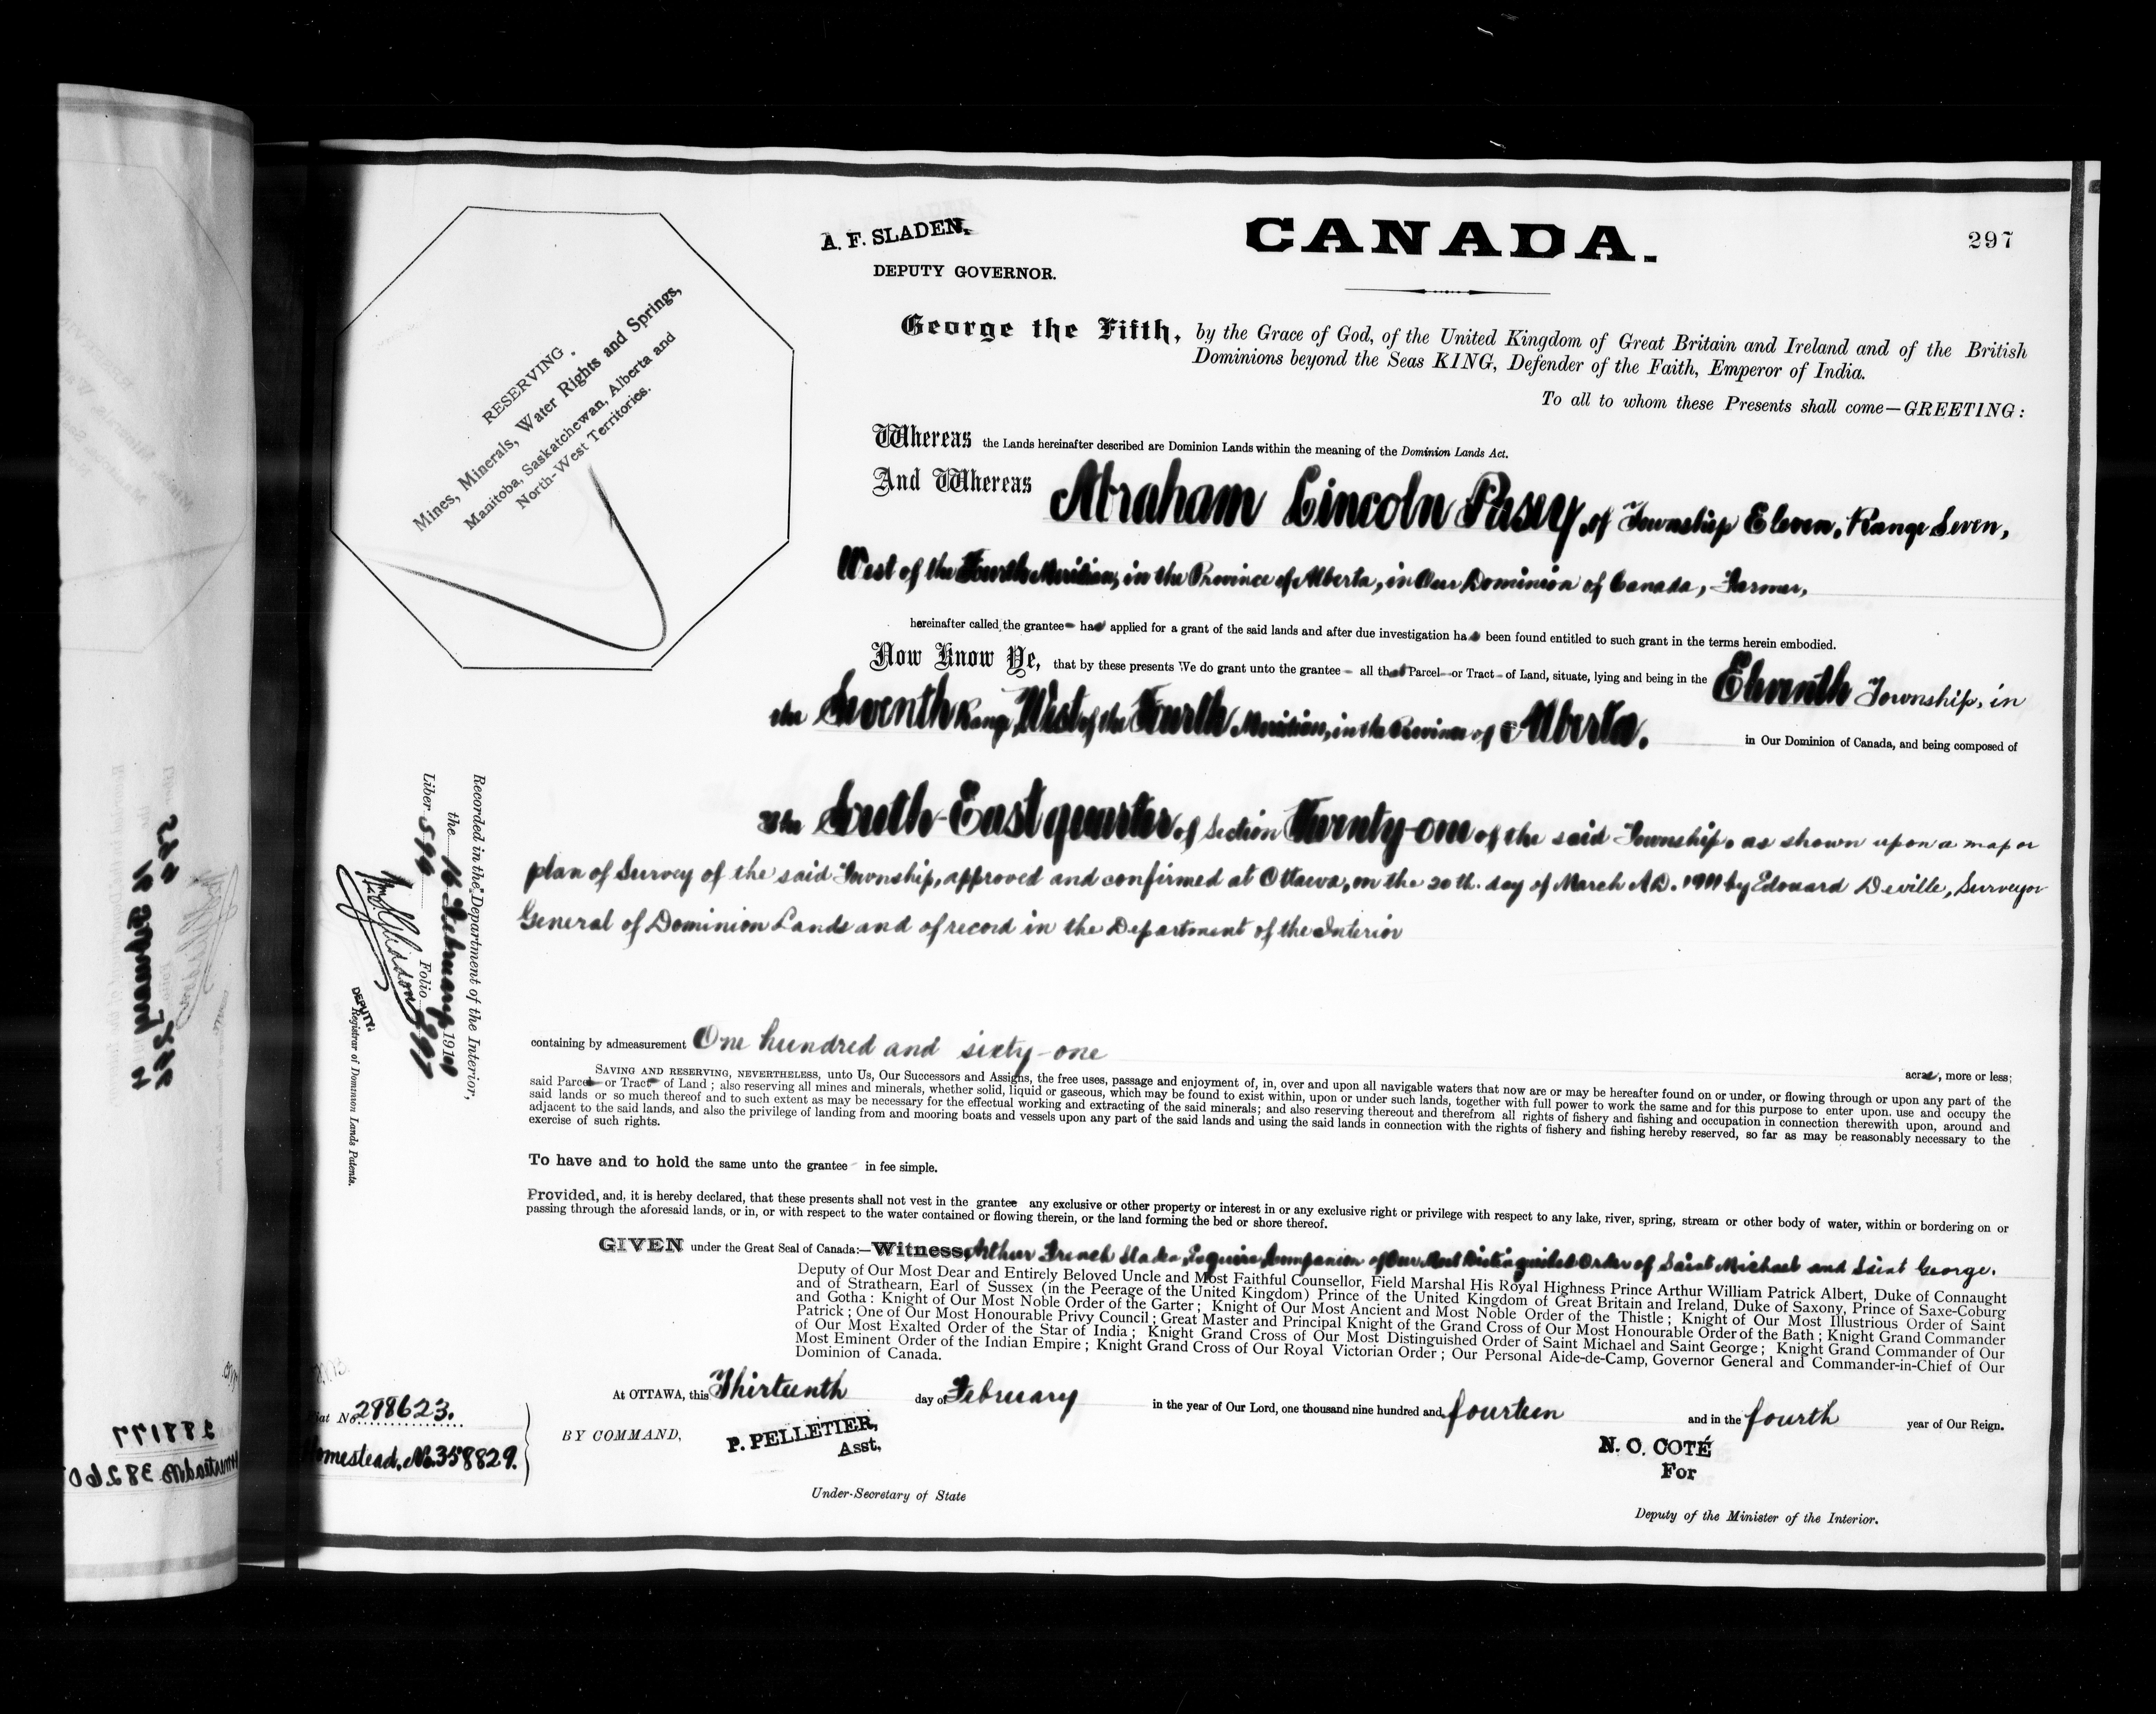 A. F. SLADEN,
DEPUTY GOVERNOR.
CANADA.
297
RESERVING
Mines, Minerals, Water Rights and Springs,
Manitoba, Saskatchewan, Alberta and
North-West Territories.
George the Fifth, by the Grace of God, of the United Kingdom of Great Britain and Ireland and of the British
Dominions beyond the Seas KING, Defender of the Faith, Emperor of India.
To all to whom these Presents shall come—GREETING:
Whereas the Lands hereinafter described are Dominion Lands within the meaning of the Dominion Lands Act.
And Whereas Abraham Lincoln Pasey, of Township Eleven, Range Seven,
West of the Fourth Meridian, in the Province of Alberta, in Our Dominion of Canada, Farmer,
hereinafter called the grantee has applied for a grant of the said lands and after due investigation has been found entitled to such grant in the terms herein embodied.
Now Know Ye, that by these presents We do grant unto the grantee all that Parcel or Tract of Land, situate, lying and being in the Eleventh Township, in
the Seventh Range, West of the Fourth Meridian, in the Province of Alberta.
in Our Dominion of Canada, and being composed of
The South-East quarter of Section Twenty-one of the said Township, as shown upon a map or
plan of Survey of the said Township, approved and confirmed at Ottawa, on the 20th. day of March A.D. 1911 by Edouard Deville, Surveyor
General of Dominion Lands and of record in the Department of the Interior
containing by admeasurement One hundred and sixty-one
acres, more or less;
SAVING AND RESERVING, NEVERTHELESS, unto Us, Our Successors and Assigns, the free uses, passage and enjoyment of, in, over and upon all navigable waters that now are or may be hereafter found on or under, or flowing through or upon any part of the
said Parcel or Tract of Land; also reserving all mines and minerals, whether solid, liquid or gaseous, which may be found to exist within, upon or under such lands, together with full power to work the same and for this purpose to enter upon, use and occupy the
said lands or so much thereof and to such extent as may be necessary for the effectual working and extracting of the said minerals; and also reserving thereout and therefrom all rights of fishery and fishing and occupation in connection therewith upon, around and
adjacent to the said lands, and also the privilege of landing from and mooring boats and vessels upon any part of the said lands and using the said lands in connection with the rights of fishery and fishing hereby reserved, so far as may be reasonably necessary to the
exercise of such rights.
To have and to hold the same unto the grantee in fee simple.
Provided, and, it is hereby declared, that these presents shall not vest in the grantee any exclusive or other property or interest in or any exclusive right or privilege with respect to any lake, river, spring, stream or other body of water, within or bordering on or
passing through the aforesaid lands, or in, or with respect to the water contained or flowing therein, or the land forming the bed or shore thereof.
GIVEN under the Great Seal of Canada:—Witness, Arthur French Sladen, Esquire, Companion of Our Most Distinguished Order of Saint Michael and Saint George.
Deputy of Our Most Dear and Entirely Beloved Uncle and Most Faithful Counsellor, Field Marshal His Royal Highness Prince Arthur William Patrick Albert, Duke of Connaught
and of Strathearn, Earl of Sussex (in the Peerage of the United Kingdom) Prince of the United Kingdom of Great Britain and Ireland, Duke of Saxony, Prince of Saxe-Coburg
and Gotha: Knight of Our Most Noble Order of the Garter; Knight of Our Most Ancient and Most Noble Order of the Thistle; Knight of Our Most Illustrious Order of Saint
Patrick; One of Our Most Honourable Privy Council; Great Master and Principal Knight of the Grand Cross of Our Most Honourable Order of the Bath; Knight Grand Commander
of Our Most Exalted Order of the Star of India; Knight Grand Cross of Our Most Distinguished Order of Saint Michael and Saint George; Knight Grand Commander of Our
Most Eminent Order of the Indian Empire; Knight Grand Cross of Our Royal Victorian Order; Our Personal Aide-de-Camp, Governor General and Commander-in-Chief of Our
Dominion of Canada.
At OTTAWA, this Thirteenth day of February in the year of Our Lord, one thousand nine hundred and fourteen and in the fourth year of Our Reign.
BY COMMAND,
P. PELLETIER,
Asst.
Under-Secretary of State
N. O. COTÉ
For
Deputy of the Minister of the Interior.
Recorded in the Department of the Interior,
the 16 February 1914
Liber 594 Folio 297
DEPUTY
Registrar of Dominion Lands Patents.
Fiat No. 298623.
Homestead. No. 358829.